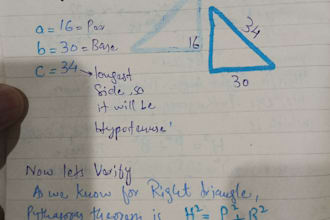 a = 16 = Per
b = 30 = Base
c = 34 → longest
side, so
it will be
Hypotenuse'
16
34
30
Now lets Verify
As we know for Right triangle,
Pythagoras theorem is H² = P² + B²